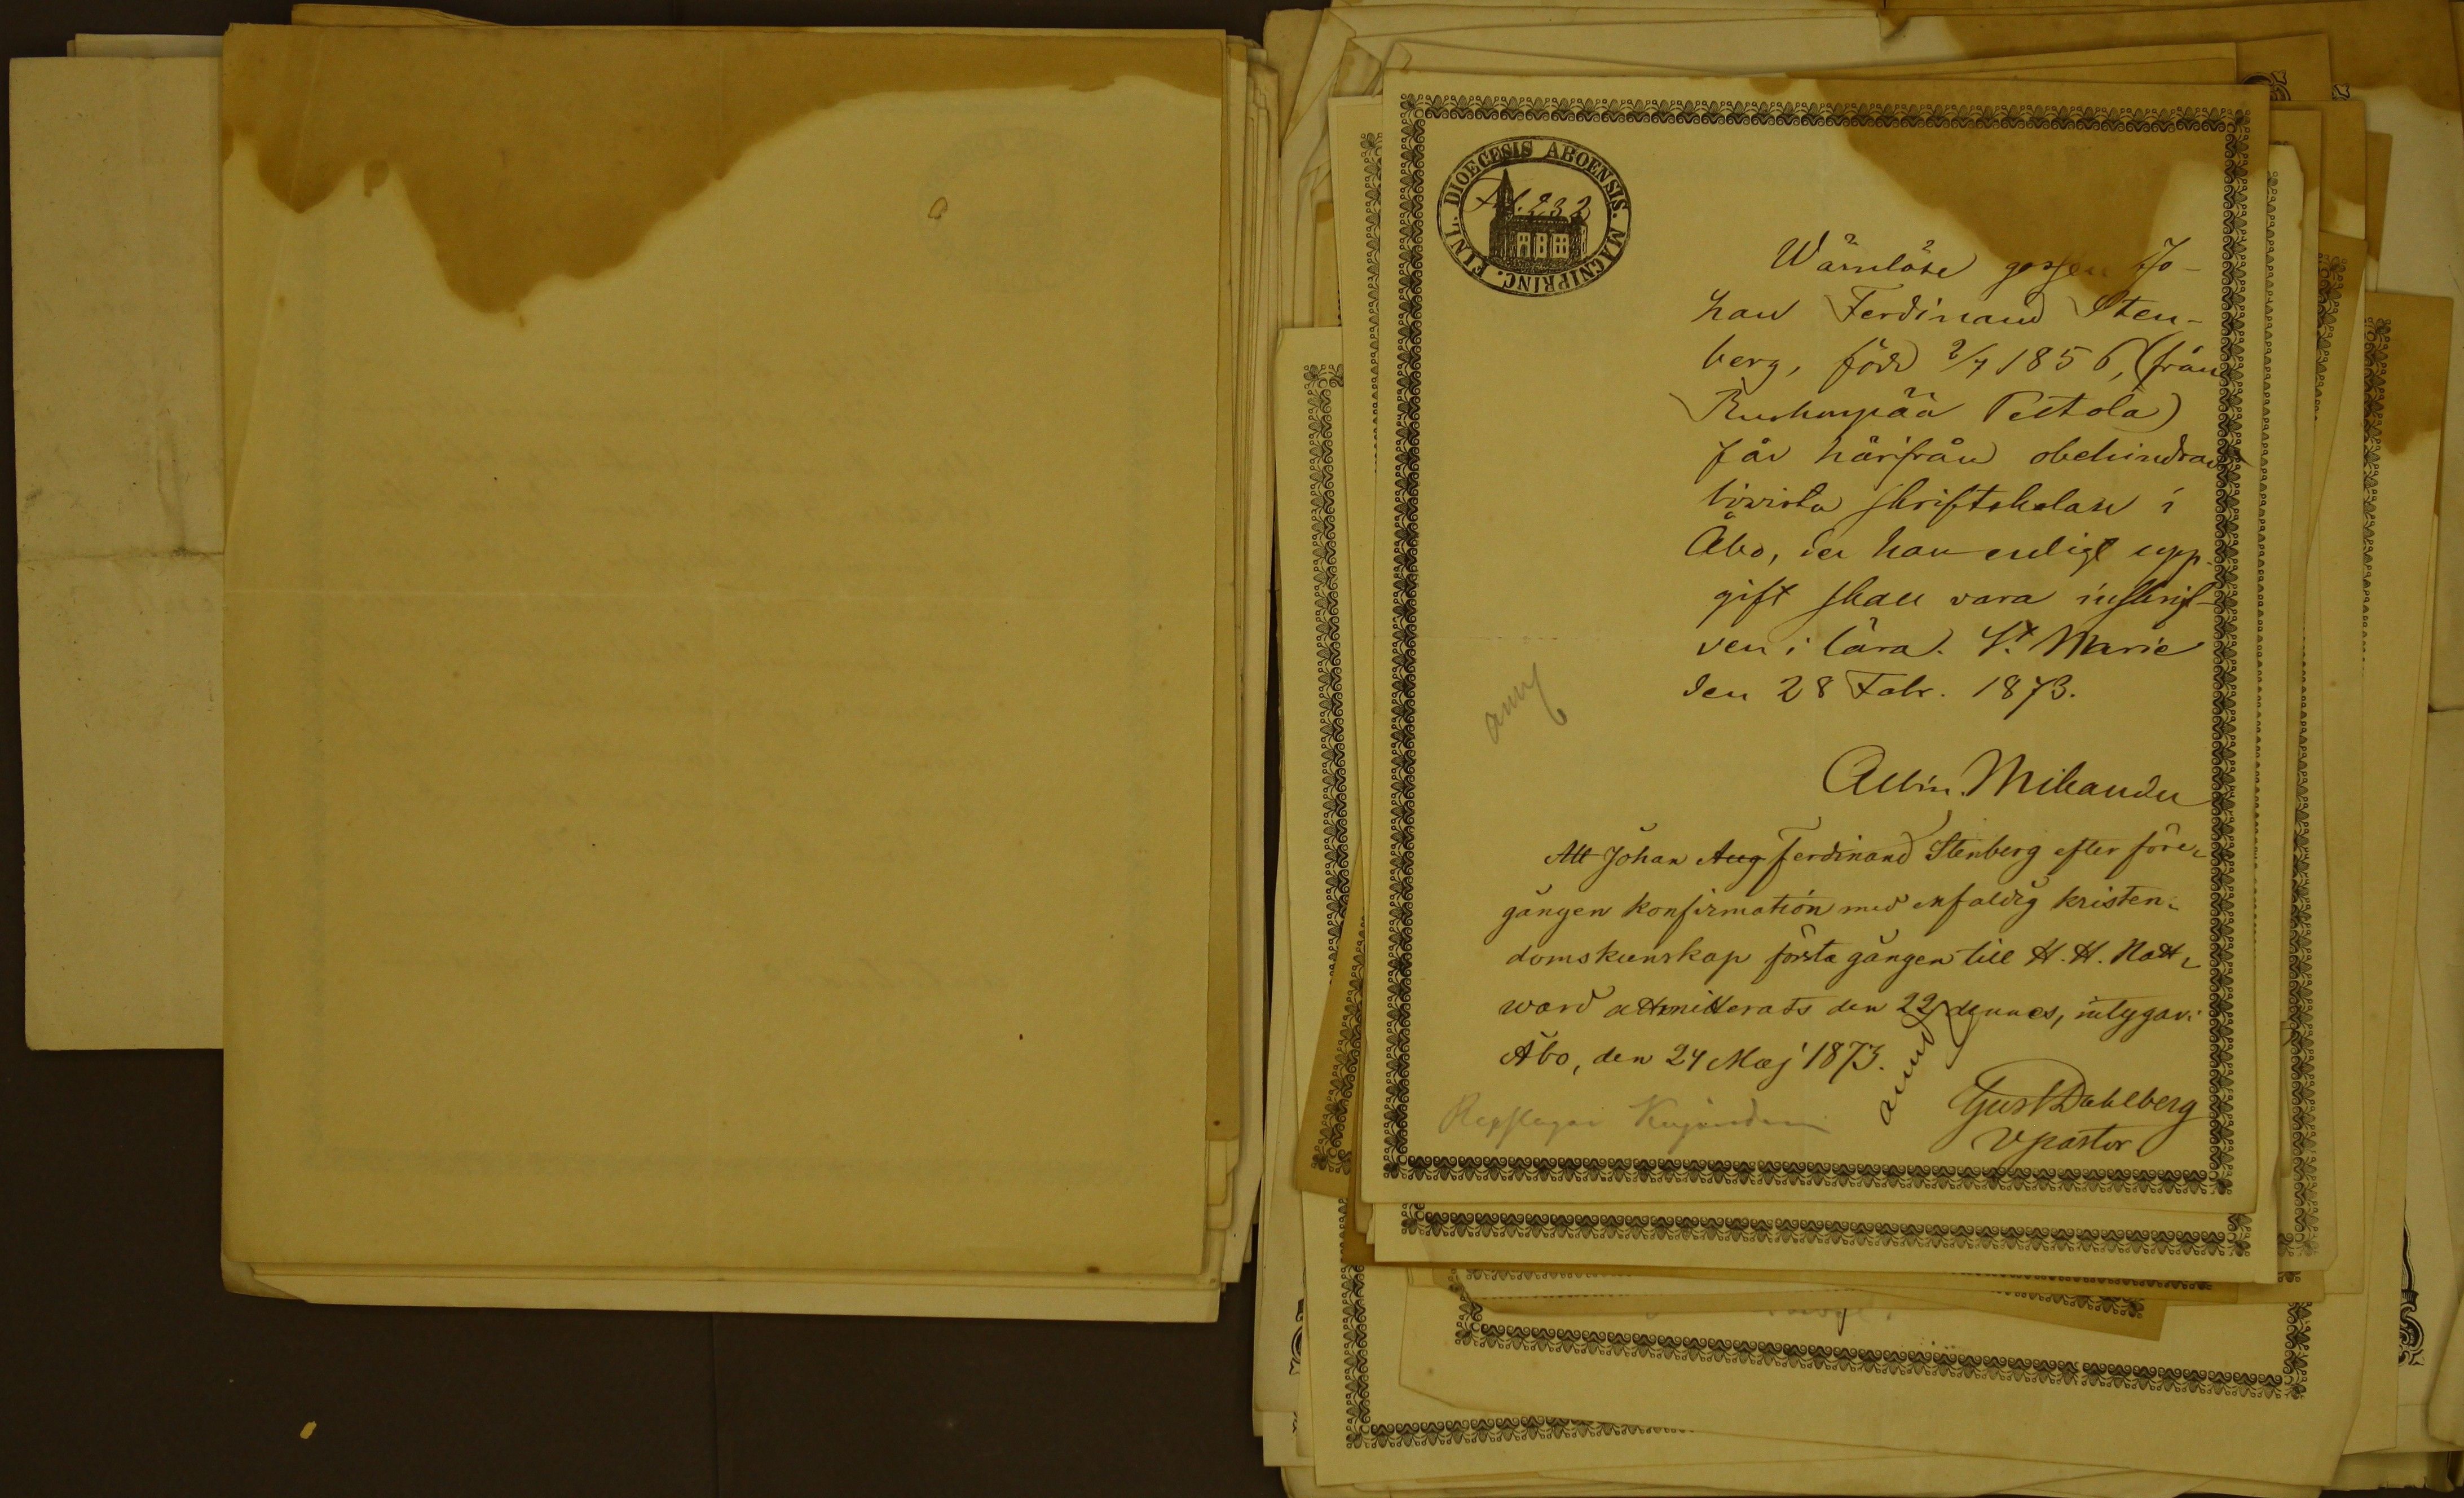 DIOECESIS ABOENSIS. MAGNIPRINC. FINL.
N. 232
Wärnlöse gossen Jo-
han Ferdinand Sten-
berg, född 2/7 1856, (från
Ruohonpää Peltola)
får härifrån obehindrad
bivista skriftskolan i
Åbo, der han enligt upp-
gift skall vara inskrif-
ven i lära. St Marie
den 28 Febr. 1873.
Albin. Mikander
Att Johan Aug Ferdinand Stenberg efter före-
gången konfirmation med enfaldig kristen-
domskunskap första gången till H. H. Natt-
ward admitterats den 22 dennes, intygar:
Åbo, den 24 Maj 1873.
Gust Dahlberg
V pastor
Repslagar